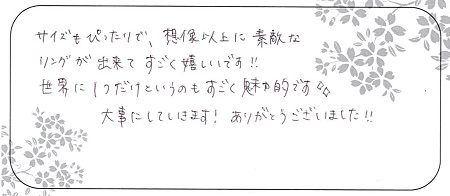 サイズもぴったりで、想像以上に素敵な
リングが出来てすごく嬉しいです!!
世界に1つだけというのもすごく魅力的です♪♪
大事にしていきます! ありがとうございました!!